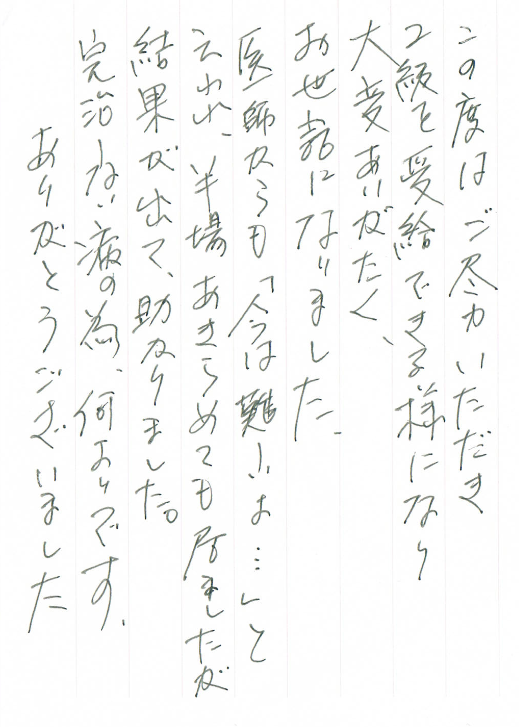 この度はご尽力いただき
2級を受給できる様になり
大変ありがたく、
お世話になりました。
医師からも「今は難しいよ…」と
云われ、半場あきらめても居ましたが
結果が出て、助かりました。
完治しない病の為、何よりです。
ありがとうございました